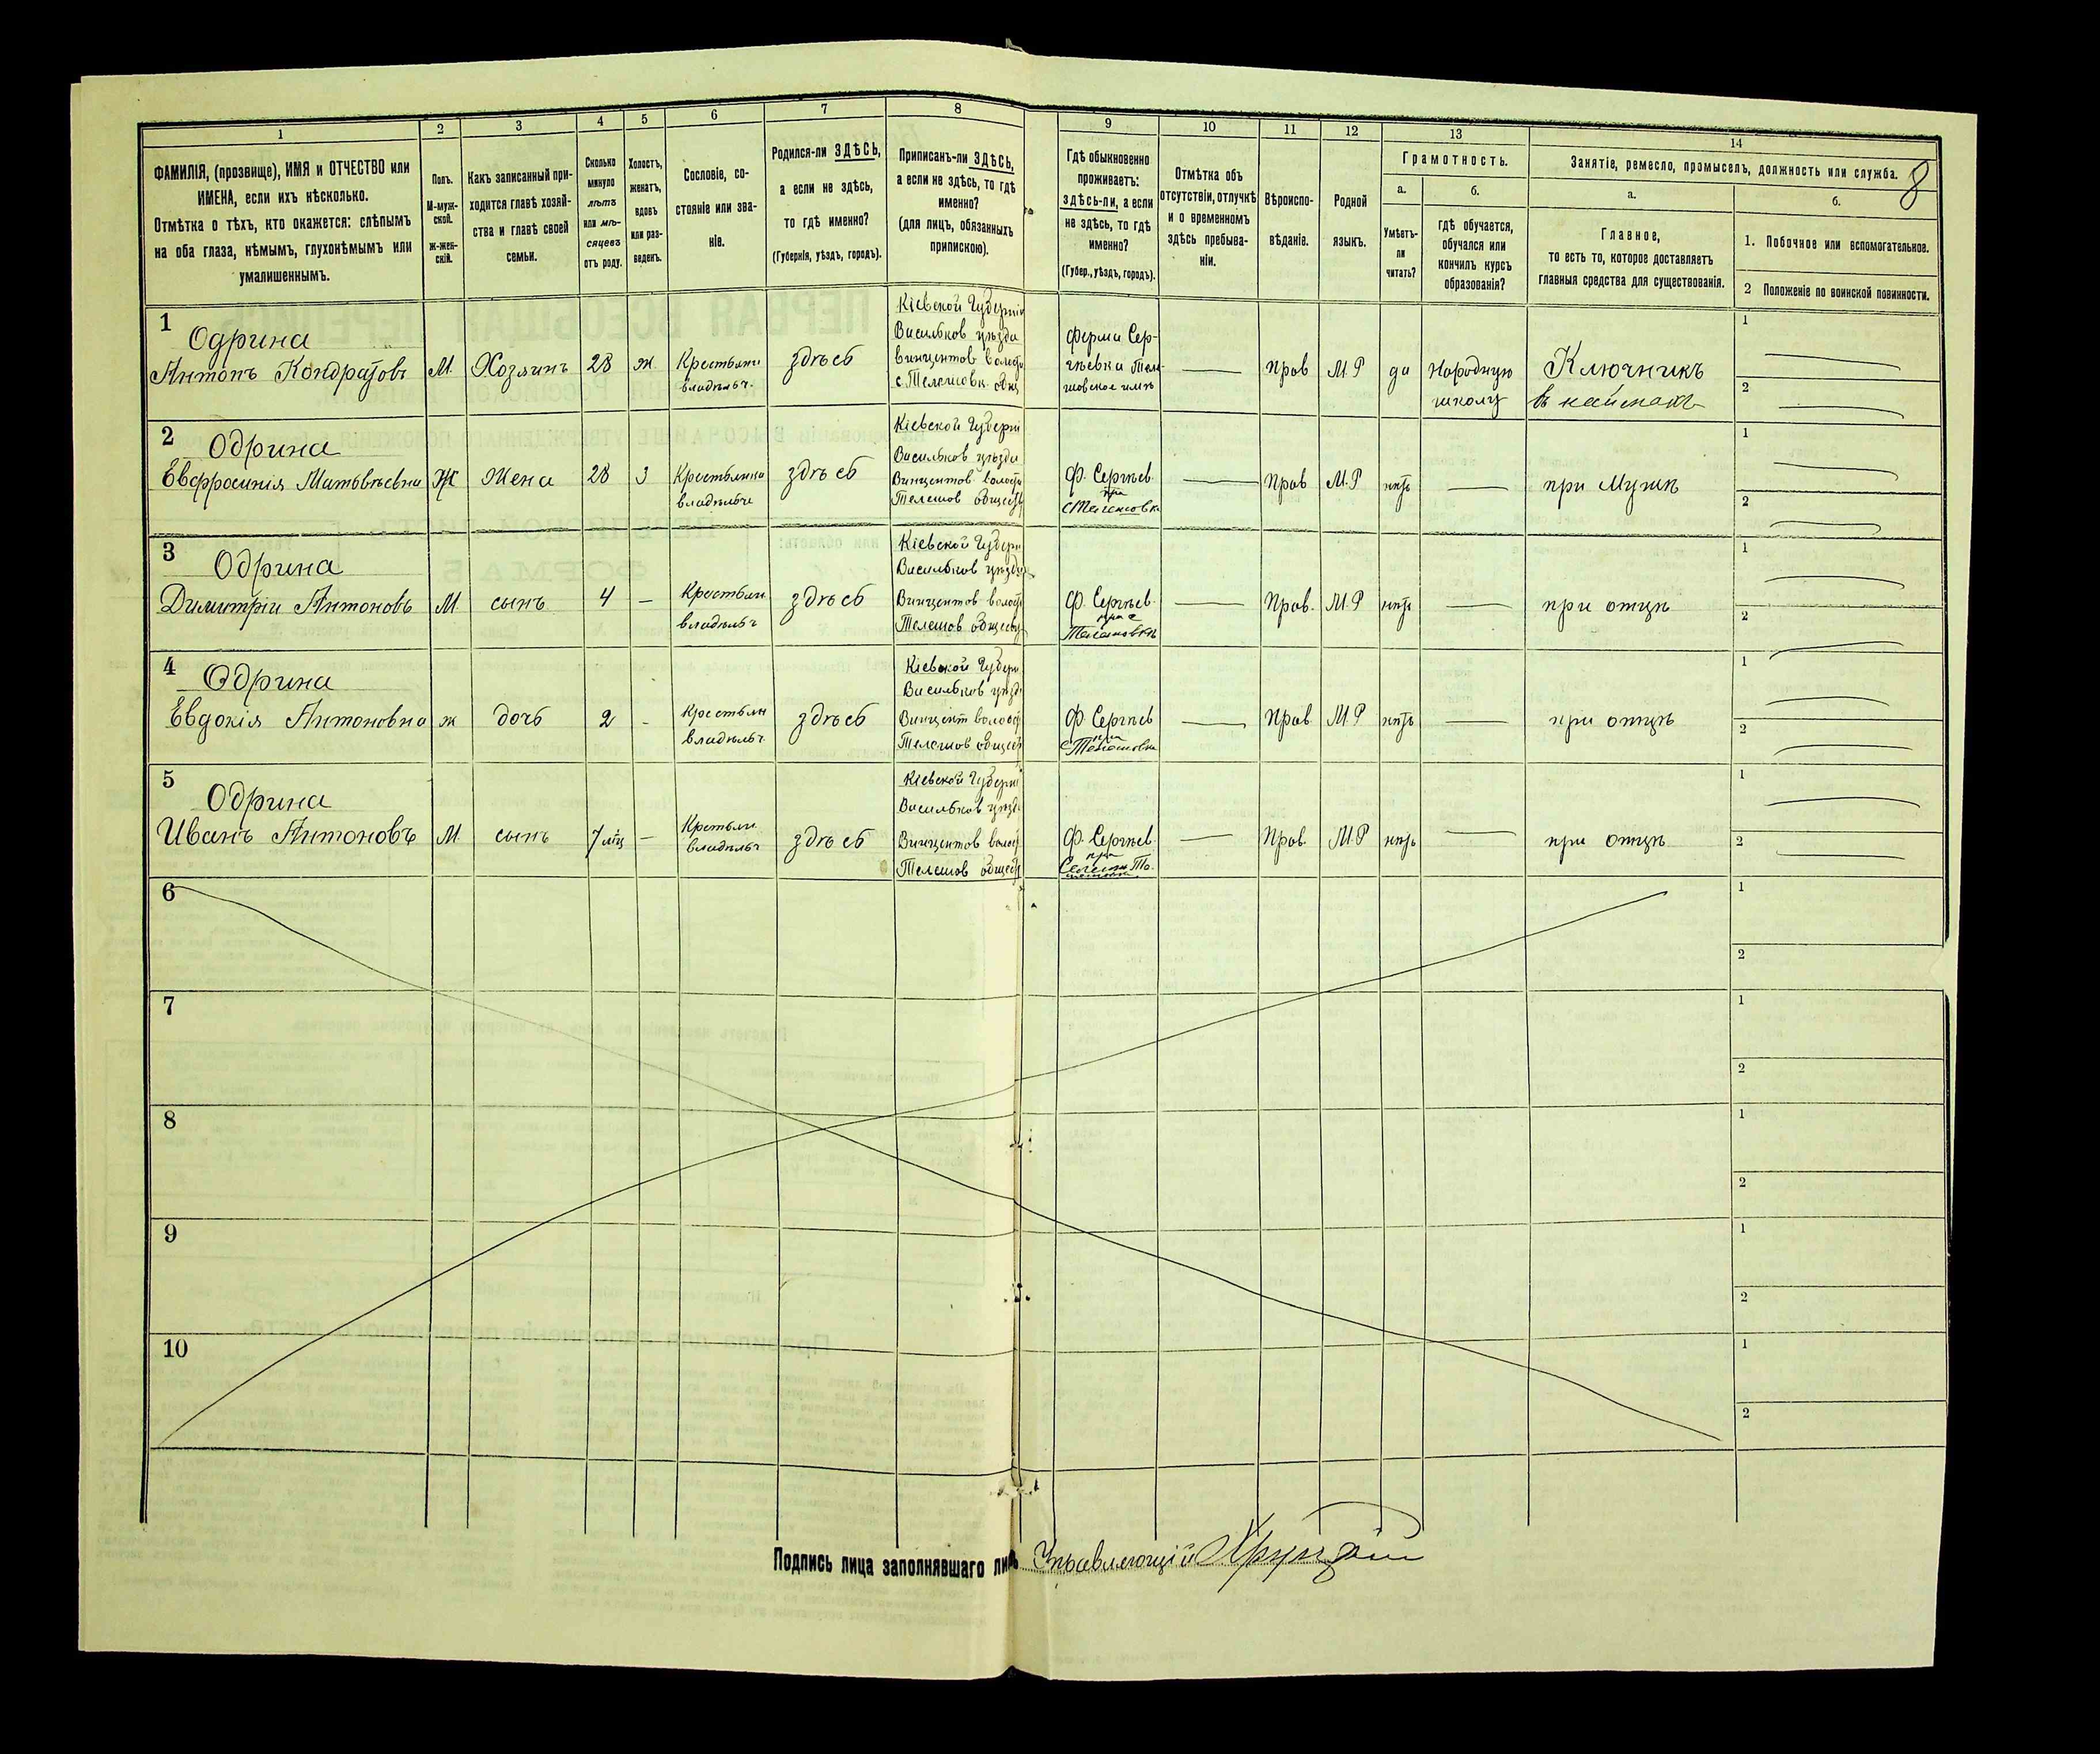 1
2
3
4
5
6
7
8
9
10
11
12
13
14
8
ФАМИЛІЯ, (прозвище), ИМЯ и ОТЧЕСТВО или
ИМЕНА, если ихъ нѣсколько.
Отмѣтка о тѣхъ, кто окажется: слѣпымъ
на оба глаза, нѣмымъ, глухонѣмымъ или
умалишеннымъ.
Полъ.
М-муж-
ской.
Ж-жен-
скій.
Какъ записанный при-
ходится главѣ хозяй-
ства и главѣ своей
семьи.
Сколько
минуло
лѣтъ
или мѣ-
сяцевъ
отъ роду.
Холостъ,
женатъ,
вдовъ
или раз-
веденъ.
Сословіе, со-
стояніе или зва-
ніе.
Родился-ли ЗДѢСЬ,
а если не здѣсь,
то гдѣ именно?
(Губернія, уѣздъ, городъ).
Приписанъ-ли ЗДѢСЬ,
а если не здѣсь, то гдѣ
именно?
(для лицъ, обязанныхъ
припискою).
Гдѣ обыкновенно
проживаетъ:
здѣсь-ли, а если
не здѣсь, то гдѣ
именно?
(Губер., уѣздъ, городъ).
Отмѣтка объ
отсутствіи, отлучкѣ
и о временномъ
здѣсь пребыва-
ніи.
Вѣроиспо-
вѣданіе.
Родной
языкъ.
Грамотность.
а.
Умѣетъ-
ли
читать?
б.
гдѣ обучается,
обучался или
кончилъ курсъ
образованія?
Занятіе, ремесло, промыселъ, должность или служба.
а.
Главное,
то есть то, которое доставляетъ
главныя средства для существованія.
б.
1. Побочное или вспомогательное.
2 Положеніе по воинской повинности.
1
Одрина
Антонъ Кондратовъ
М.
Хозяинъ
28
ж.
Крестьяни
владѣльч.
здѣсь
Кіевской Губерніи
Васильков уѣзда
винцентов волост
с. Телешовк. общ
Ферма Сер-
гѣевка Теле-
шовское имѣ
Прав
М.Р
да
Народную
школу
Ключникъ
въ наймахъ
1
2
2
Одрина
Евфросинія Матвѣевна
Ж
Жена
28
З
Крестьянка
владѣльч
здѣсь
Кіевской Губерні
Васильков уѣзда
Винцентов волост
Телешов общест
Ф. Сергѣев.
при
с Телешовк
Прав
М.Р
нѣтъ
при мужѣ
1
2
3
Одрина
Димитрій Антоновъ
М.
сынъ
4
Крестьян
владѣльч
здѣсь
Кіевской Губерн
Васильков уѣзда
Винцентов волост
Телешов общест
Ф. Сергѣев.
при с
Телешовкѣ
Прав.
М.Р
нѣтъ
при отцѣ
1
2
4
Одрина
Евдокія Антоновна
ж
дочь
2
Крестьян
владѣльч.
здѣсь
Кіевской Губерн
Васильков уѣзд
Винцент волост
Телешов общест
Ф Сергѣев
при
с Телешовка
Прав
М.Р
нѣтъ
при отцѣ
1
2
5
Одрина
Иванъ Антоновъ
М.
сынъ
7 мѣс
Крестьян.
владѣльч
здѣсь
Кіевской Губерні
Васильков уѣзд
Винцентов волост
Телешов общест
Ф. Сергѣев.
при
Прав.
М.Р
нѣтъ
при отцѣ
1
2
6
1
2
7
1
2
8
1
2
9
1
2
10
1
2
Подпись лица заполнявшаго ли
Управляющій